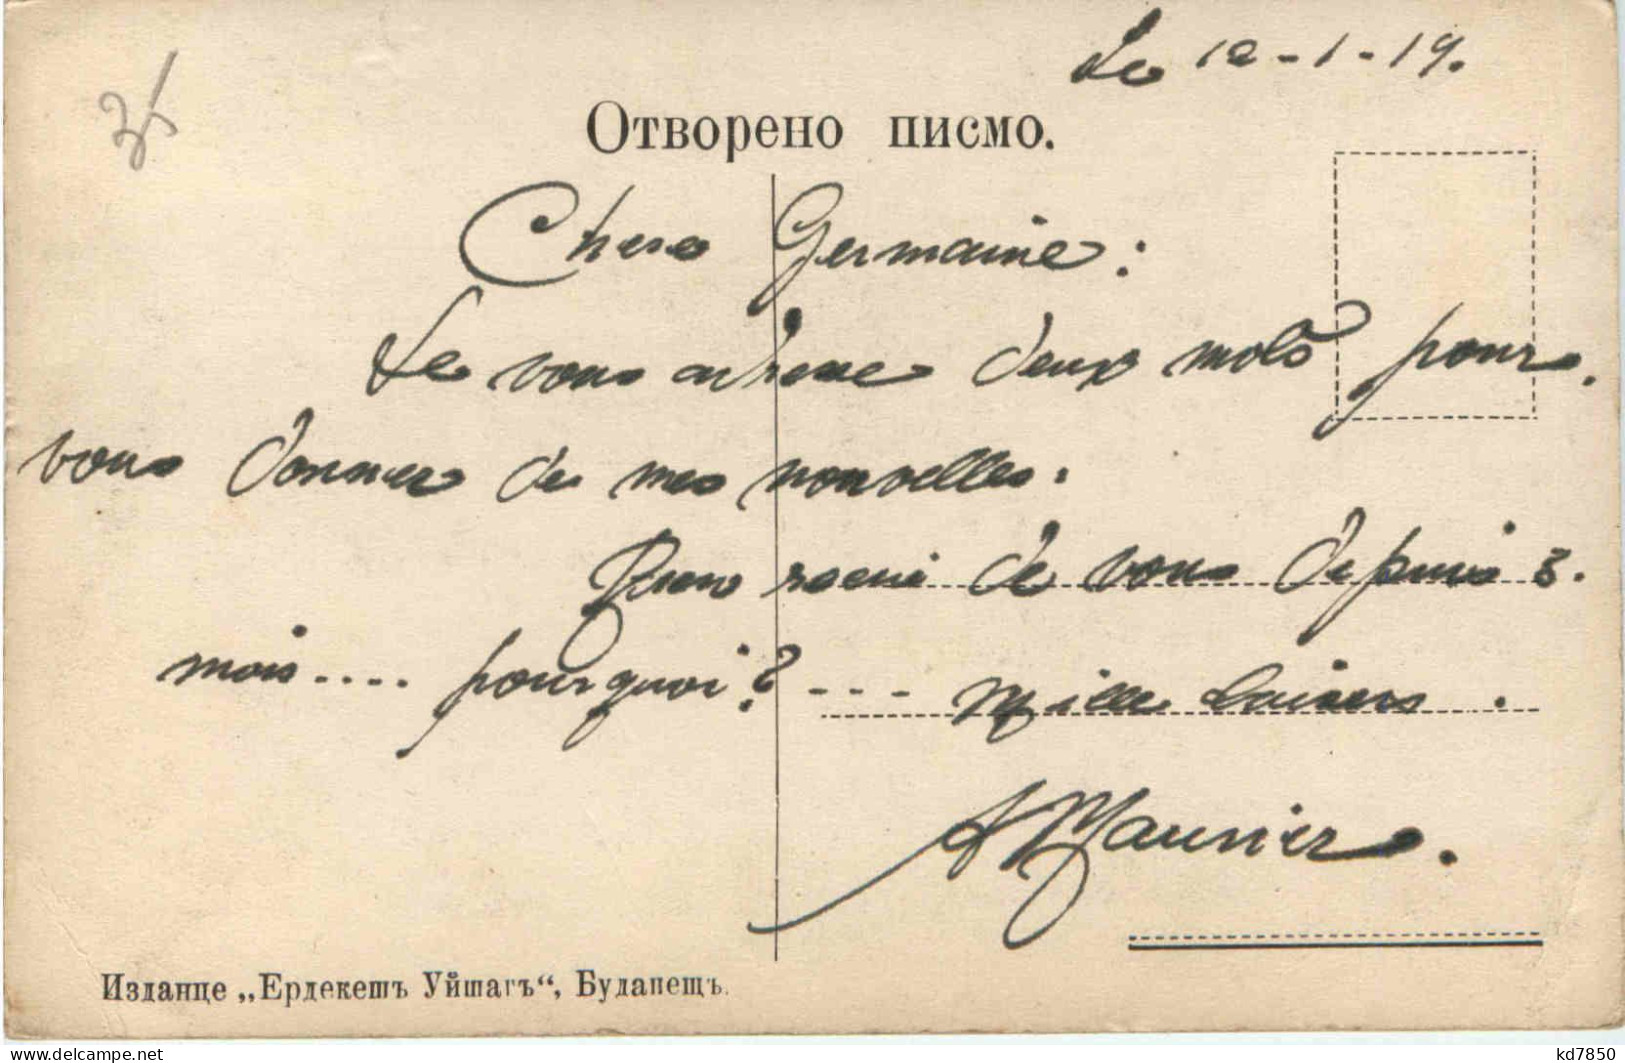 Le 12-1-19.
Отворено писмо.
Chere Germaine:
Je vous adresse deux mots pour.
vous donner de mes nouvelles.
Rien recu de vous depuis 3.
mois.... pourquoi? --- Mille baisers.
A Maunier.
Изданце „Ердекешъ Уйшагъ“, Будапещъ.
www.delcampe.net
kd7850